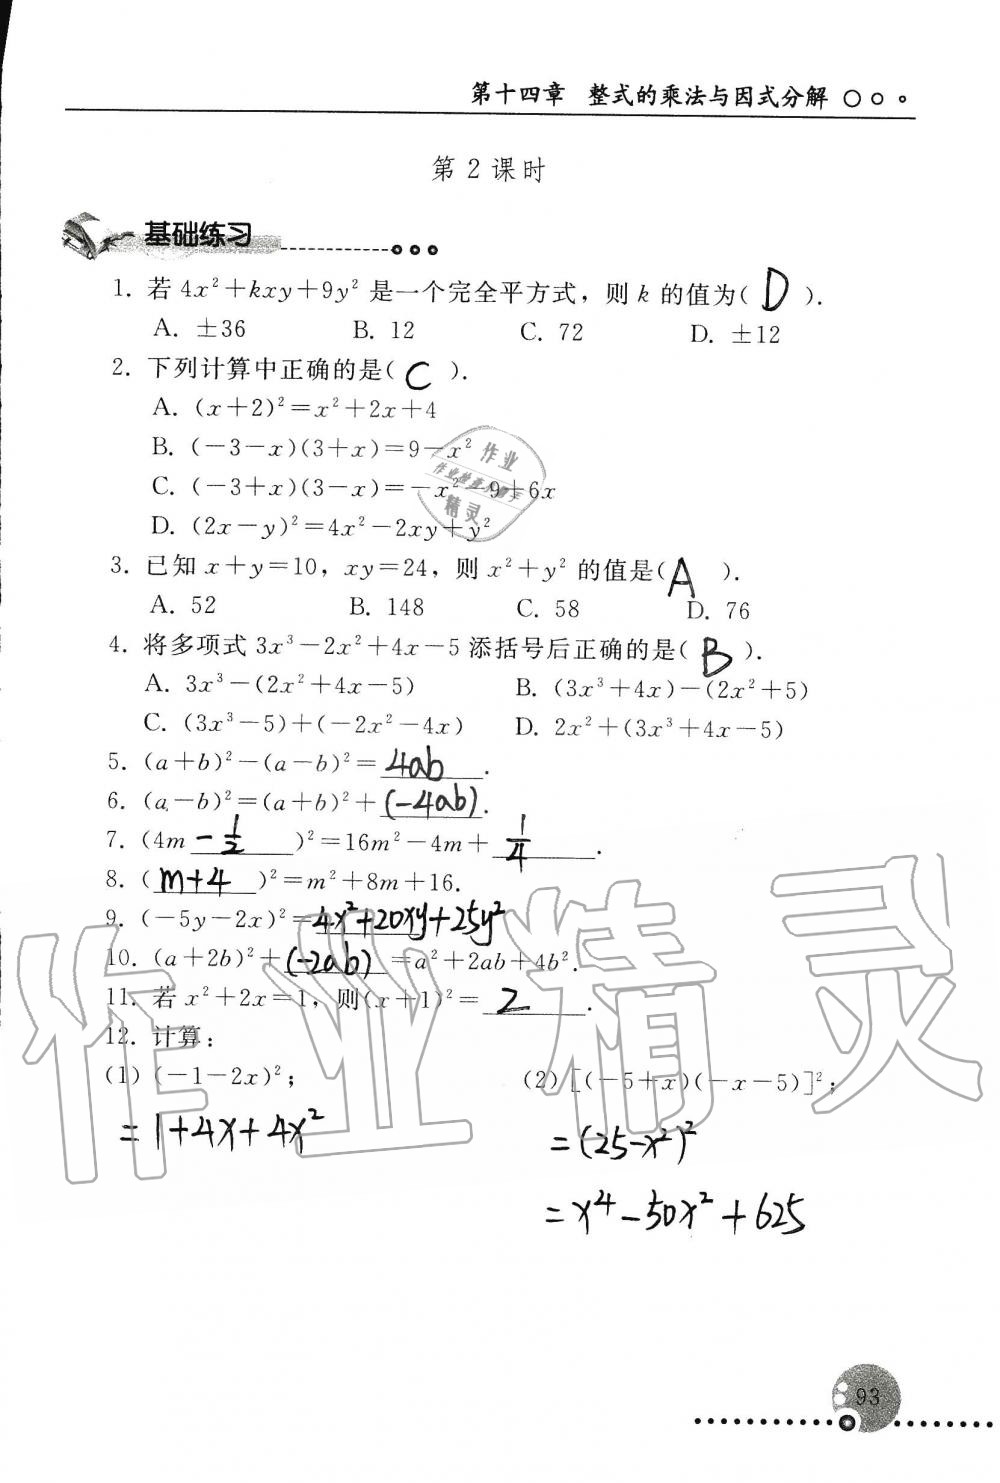 第十四章 整式的乘法与因式分解
第2课时
基础练习
1. 若 4x²+kxy+9y² 是一个完全平方式，则 k 的值为( D ).
A. ±36 B. 12 C. 72 D. ±12
2. 下列计算中正确的是( C ).
A. (x+2)²=x²+2x+4
B. (-3-x)(3+x)=9-x²
C. (-3+x)(3-x)=-x²-9+6x
D. (2x-y)²=4x²-2xy+y²
3. 已知 x+y=10，xy=24，则 x²+y² 的值是( A ).
A. 52 B. 148 C. 58 D. 76
4. 将多项式 3x³-2x²+4x-5 添括号后正确的是( B ).
A. 3x³-(2x²+4x-5) B. (3x³+4x)-(2x²+5)
C. (3x³-5)+(-2x²-4x) D. 2x²+(3x³+4x-5)
5. (a+b)²-(a-b)²=4ab.
6. (a-b)²=(a+b)²+(-4ab).
7. (4m -1/2 )²=16m²-4m+ 1/4 .
8. ( m+4 )²=m²+8m+16.
9. (-5y-2x)²=4x²+20xy+25y²
10. (a+2b)²+(-2ab)=a²+2ab+4b².
11. 若 x²+2x=1，则(x+1)²= 2 .
12. 计算：
(1) (-1-2x)²； (2) [(-5+x)(-x-5)]²；
=1+4x+4x² =(25-x²)²
=x⁴-50x²+625
93
作业精灵
作业
精灵